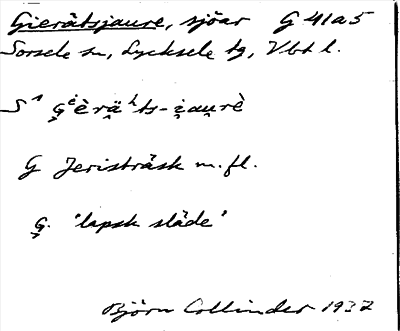 Gierätsjaure, sjöar G 41a5
Sorsele sn, Lycksele tg, Vbt l.
G Jeristräsk m. fl.
G. 'lapsk släde'
Björn Collinder 1932